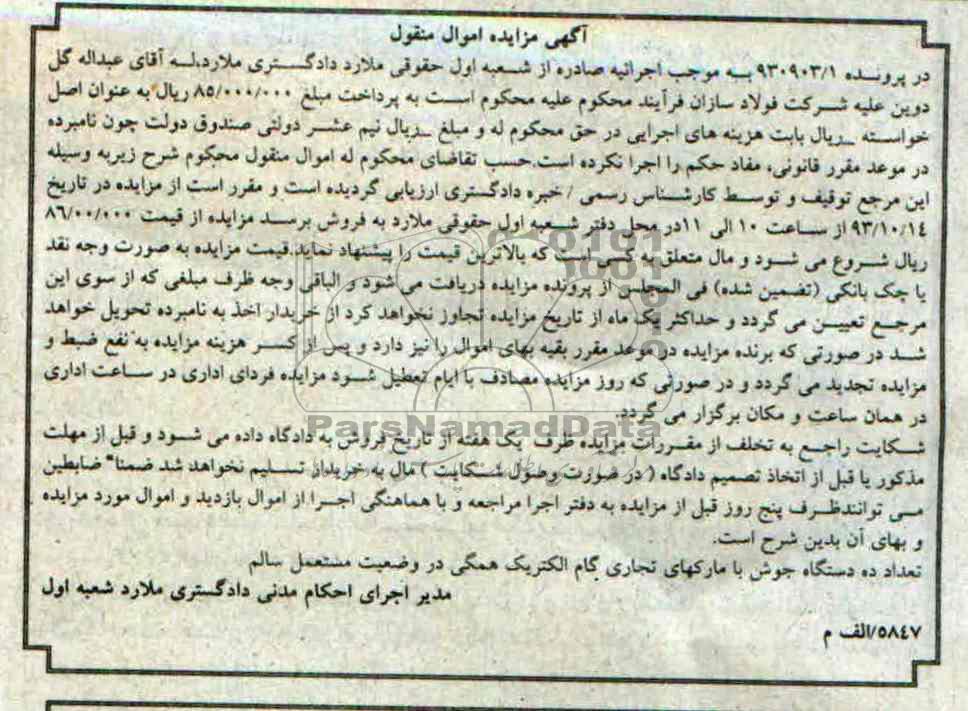 آگهی مزایده اموال منقول
در پرونده ۹۳۰۹۰۳/۱ به موجب اجرائیه صادره از شعبه اول حقوقی ملارد دادگستری ملارد،له آقای عبداله گل
دوین علیه شرکت فولاد سازان فرآیند محکوم علیه محکوم است به پرداخت مبلغ ۸۵/۰۰۰/۰۰۰ ریال به عنوان اصل
خواسته _ریال بابت هزینه های اجرایی در حق محکوم له و مبلغ _ریال نیم عشر دولتی صندوق دولت چون نامبرده
در موعد مقرر قانونی، مفاد حکم را اجرا نکرده است.حسب تقاضای محکوم له اموال منقول محکوم شرح زیربه وسیله
این مرجع توقیف و توسط کارشناس رسمی / خبره دادگستری ارزیابی گردیده است و مقرر است از مزایده در تاریخ
۹۳/۱۰/۱۴ از ساعت ۱۰ الی ۱۱در محل دفتر شعبه اول حقوقی ملارد به فروش برسد مزایده از قیمت ۸۶/۰۰/۰۰۰
ریال شروع می شود و مال متعلق به کسی است که بالاترین قیمت را پیشنهاد نماید.قیمت مزایده به صورت وجه نقد
یا چک بانکی (تضمین شده) فی المجلس از پرونده مزایده دریافت می شود و الباقی وجه ظرف مبلغی که از سوی این
مرجع تعیین می گردد و حداکثر یک ماه از تاریخ مزایده تجاوز نخواهد کرد از خریدار اخذ به نامبرده تحویل خواهد
شد در صورتی که برنده مزایده در موعد مقرر بقیه بهای اموال را نیز دارد و پس از کسر هزینه مزایده به نفع ضبط و
مزایده تجدید می گردد و در صورتی که روز مزایده مصادف با ایام تعطیل شود مزایده فردای اداری در ساعت اداری
در همان ساعت و مکان برگزار می گردد.
شکایت راجع به تخلف از مقررات مزایده ظرف یک هفته از تاریخ فروش به دادگاه داده می شود و قبل از مهلت
مذکور یا قبل از اتخاذ تصمیم دادگاه ( در صورت وصول شکایت ) مال به خریدار تسلیم نخواهد شد ضمنا" ضابطین
می توانندظرف پنج روز قبل از مزایده به دفتر اجرا مراجعه و با هماهنگی اجرا از اموال بازدید و اموال مورد مزایده
و بهای آن بدین شرح است.
تعداد ده دستگاه جوش با مارکهای تجاری گام الکتریک همگی در وضعیت مستعمل سالم
مدیر اجرای احکام مدنی دادگستری ملارد شعبه اول
۵۸۴۷/الف م
ParsNamadData